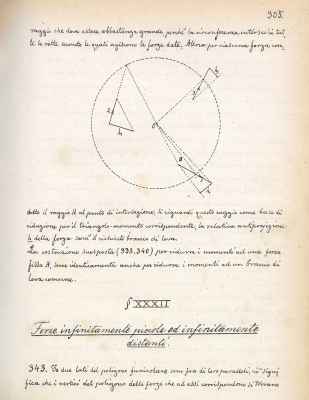 305.
raggio che deve essere abbastanza grande, perché la circonferenza intersechi tut-
te le rette secondo le quali agiscono le forze date. Allora per ciascuna forza, con-
h
h
O
dotto il raggio R al punto di intersezione, si riguardi questo raggio come base di
riduzione per il triangolo-momento corrispondente, la relativa antiproiezione
h della forza sarà il richiesto braccio di leva.
La costruzione suesposta (339, 340) per ridurre i momenti ad una forza
fissa H, serve identicamente anche per ridurre i momenti ad un braccio di
leva comune.
§ XXXII
Forze infinitamente piccole ed infinitamente
distanti
343. Se due lati del poligono funicolare sono fra di loro paralleli, ciò signi-
fica che i vertici del poligono delle forze che ad essi corrispondono si trovano